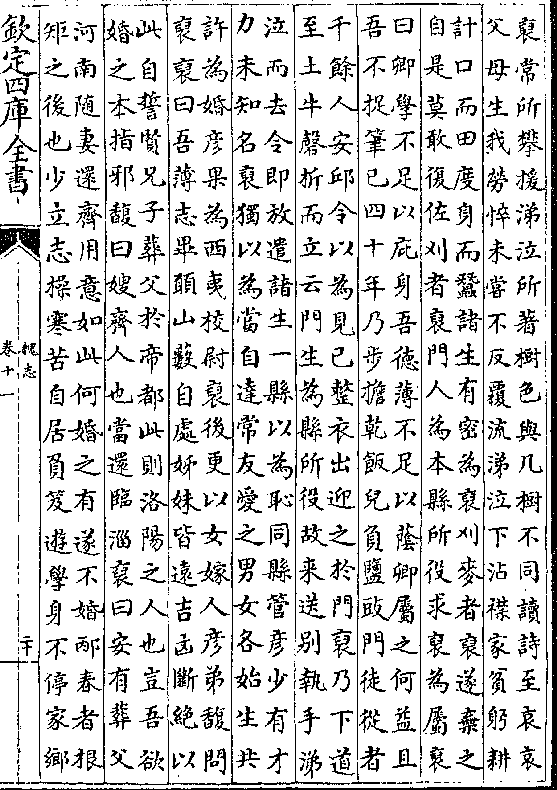 裒常所攀援涕泣所著樹色與凡樹不同讀詩至哀哀
父母生我勞悴未嘗不反覆流涕泣下沾襟家貧躬耕
計口而田度身而蠶諸生有密為裒刈麥者裒遂棄之
自是莫敢復佐刈者裒門人為本縣所役求裒為屬裒
曰卿學不足以庇身吾德薄不足以蔭卿屬之何益且
吾不捉筆已四十年乃步擔乾飯兒負鹽豉門徒從者
千餘人安邱令以為見已整衣出迎之於門裒乃下道
至土牛磬折而立云門生為縣所役故来送别執手涕
泣而去令即放遣諸生一縣以為恥同縣管彦少有才
力未知名裒獨以為當自達常友愛之男女各始生共
許為婚彦果為西夷校尉裒後更以女嫁人彦弟馥問
裒裒曰吾薄志畢願山藪自處姊妹皆遠吉凶斷絶以
此自誓賢兄子葬父於帝都此則洛陽之人也豈吾欲
婚之本指邪馥曰嫂齊人也當還臨淄裒曰安有葬父
河南隨妻還齊用意如此何婚之有遂不婚邴春者根
矩之後也少立志操寒苦自居負笈遊學身不停家鄉
欽定四庫全書
魏志
卷十一
二十